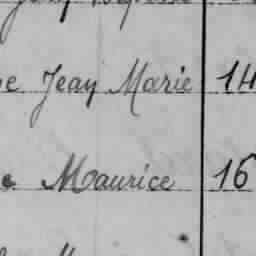 e Jean Marie 14
e Maurice 16